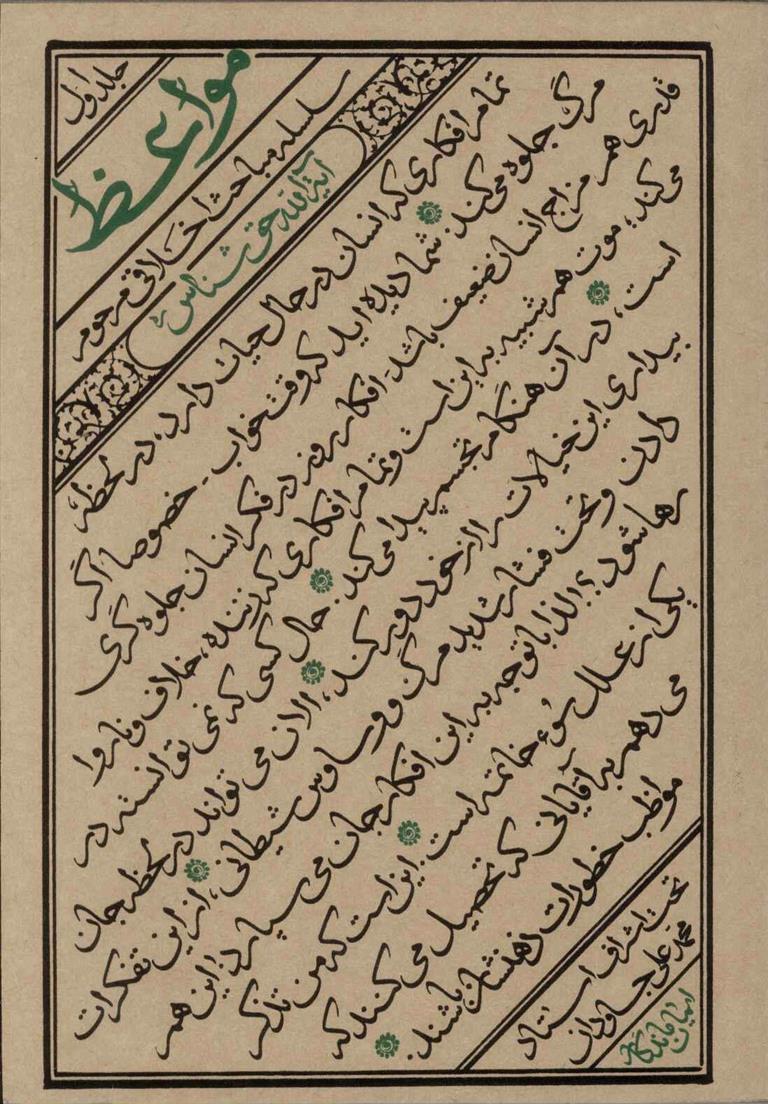 جلد اول
مواعظ
سلسله مباحث اخلاقی مرحوم
آیةالله حق شناس ره
تمام افکاری که انسان در حال حیات دارد، در لحظهٔ
مرگ جلوه می کند. شما دیده اید که وقت خواب - خصوصا اگر
قدری هم مزاج انسان ضعیف باشد - افکار روز در فکر انسان جلوه گری
می کند؛ موت هم شبیه به این است و تمام افکاری که زننده، خلاف و ناروا
است، در آن هنگام تجسم پیدا می کند. حال کسی که نمی توانسته در
بیداری این خیالات را از خود دور کند، الان می تواند در لحظه جان
دادن و تحت فشار شدید مرگ و وساوس شیطانی، از این تفکرات
رها شود؟! لذا با توجه به این افکار جان می سپارد؛ این هم
یکی از علل سوء خاتمه است. این است که من تذکر
می دهم به آقایانی که تحصیل می کنند که
مواظب خطورات ذهنشان باشند.
تحت اشراف استاد
محمدعلی جاودان
ماندگار